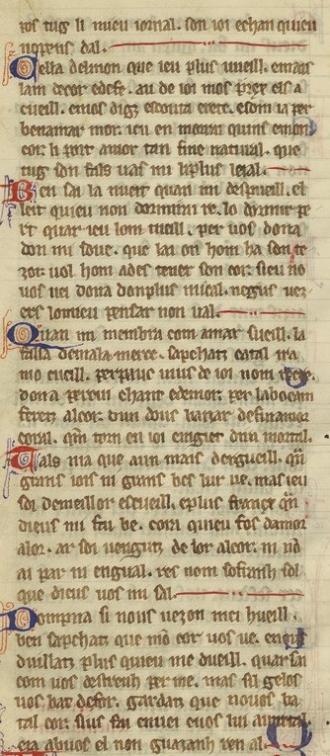 ros tug li mieu iornal. son ioi echan quieu
nopens dal.
Cella delmon que ieu plus vueill. emais
lam decor edefe. au de ioi mos precx els a
cueill. emos digz escouta erete. esom ia per
benamar mor. ieu en morrai quins emon
cor li port amor tan fine natural. que
tug son fals uas mi liplus leial.
Ben sai la nueit quan mi despueill. el
leit quieu non dormirai re. lo dormir pe
rt quar ieu lom tueill. per uos dona
don mi soue. que lai on hom ha son te
zor uol hom ades tener son cor. sieu no
uos uei dona donplus mical. negus vez
ers lomieu pensar non ual.
Quan mi membra com amar sueill. la
falsa demala merce. sapchatz catal ira
mo cueill. perpauc uius de ioi nom recre.
dona percui chant edemor. per labocam
feretz alcor. dun dous baizar definamor
coral. quem torn en ioi emgiet dira mortal.
Tals nia que aun mais dergueill. quan
grans iois ni grans bes lur ue. mas ieu
soi demeillor escueill. eplus francx quan
dieus mi fai be. cora quieu fos damor
alor. ar soi uengutz de lor alcor. ni no
ai par ni engual. res nom sofranh sol
que dieus uos mi sal.
Dompna si nous uezon mei hueill.
ben sapchatz que mo cor uos ue. enous
duillatz plus quieu me dueill. quar sai
com uos destrenh per me. mas sil gelos
uos bat defor. gardatz que nouos ba
tal cor. sius fai enuei euos lui autretal.
eia abuos el non guazanh ben al.